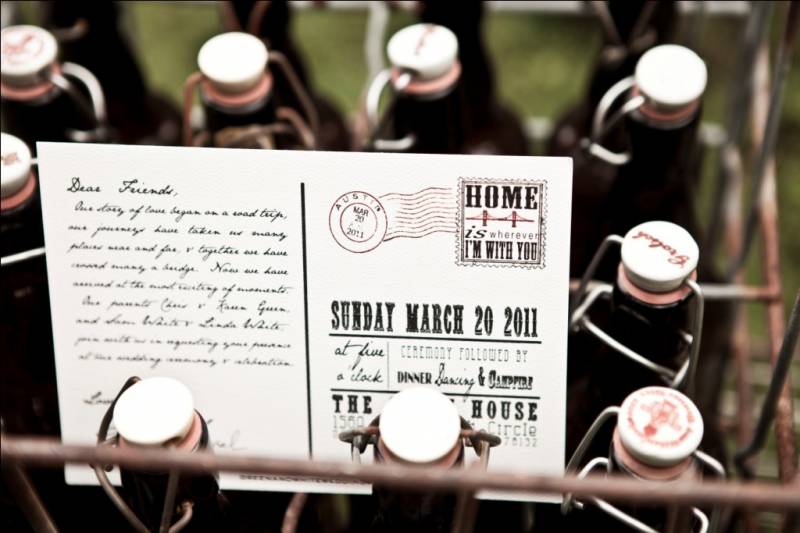 Dear Friends,
Our story of love began on a road trip,
our journeys have taken us many
places near and far, & together we have
crossed many a bridge. Now we have
arrived at the most exciting of moments.
Our parents Chris & Karen Green,
and Sam White & Linda White,
join with us in requesting your presence
at our wedding ceremony & celebration.
AUSTIN
MAR
20
2011
HOME
is wherever
I'M WITH YOU
SUNDAY MARCH 20 2011
at five
o'clock
CEREMONY FOLLOWED BY
DINNER Dancing & CAMPFIRE
THE HOUSE
Circle
78132
Grolsch